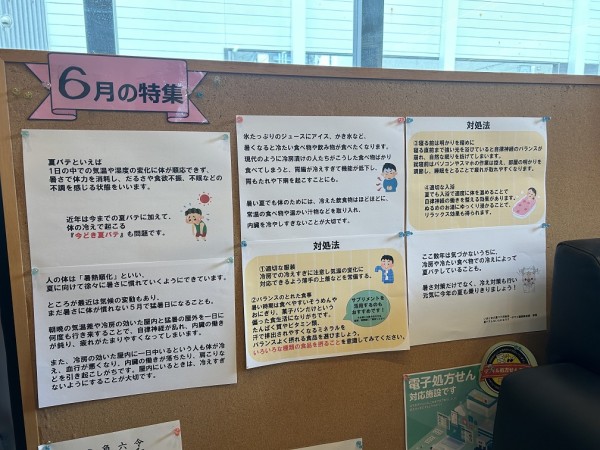 6月の特集
夏バテといえば
1日の中での気温や湿度の変化に体が順応できず、
暑さで体力を消耗し、だるさや食欲不振、不眠などの
不調を感じる状態をいいます。
近年は今までの夏バテに加えて、
体の冷えで起こる
『今どき夏バテ』も問題です。
人の体は「暑熱順化」といい、
夏に向けて徐々に暑さに慣れていくようにできています。
ところが最近は気候の変動もあり、
まだ暑さに体が慣れない5月で猛暑日になることも。
朝晩の気温差や冷房の効いた屋内と猛暑の屋外を一日に
何度も行き来することで、自律神経が乱れ、内臓の働き
が鈍り、疲れがたまりやすくなってしまいます。
また、冷房の効いた屋内に一日中いるという人も体が冷
え、血行が悪くなり、内臓の働きが落ちたり、肩こりな
どを引き起こしがちです。屋内にいるときは、冷えすぎ
ないようにすることが大切です。
氷たっぷりのジュースにアイス、かき氷など、
暑くなると冷たい食べ物や飲み物が食べたくなります。
現代のように冷房漬けの人たちがこうした食べ物ばかり
食べてしまうと、胃腸が冷えすぎて機能が低下し、
胃もたれや下痢を起こすことにも。
暑い夏でも体のためには、冷えた飲食物はほどほどに、
常温の食べ物や温かい汁物などを取り入れ、
内臓を冷やしすぎないことが大切です。
対処法
①適切な服装
冷房での冷えすぎに注意し気温の変化に
対応できるよう薄手の上掛などを常備する。
②バランスのとれた食事
暑い時期は食べやすいそうめんや
おにぎり、菓子パンだけという
偏った食生活になりがちです。
たんぱく質やビタミン類、
汗で排出されやすくなるミネラルを
バランスよく摂れる食品を選びましょう。
いろいろな種類の食品を摂ることを意識してみてください。
サプリメントを
活用するのも
おすすめです!
対処法
③寝る前は明かりを暗めに
寝る直前まで強い光を浴びていると自律神経のバランスが
崩れ、自然な眠りを妨げてしまいます。
就寝前はパソコンやスマホの作業は控え、部屋の明かりを調
整し、睡眠をとることで疲れが取れやすくなります。
④適切な入浴
夏でも入浴で適度に体を温めることで
自律神経の働きを整える効果があります。
ぬるめのお湯にゆっくり浸かることで、
リラックス効果も得られます。
ここ数年は気づかないうちに、
冷房や冷たい食べ物での冷えによって
夏バテしていることも。
暑さ対策だけでなく、冷え対策も行い
元気に今年の夏も乗りきりましょう!
電子処方せん
対応施設です